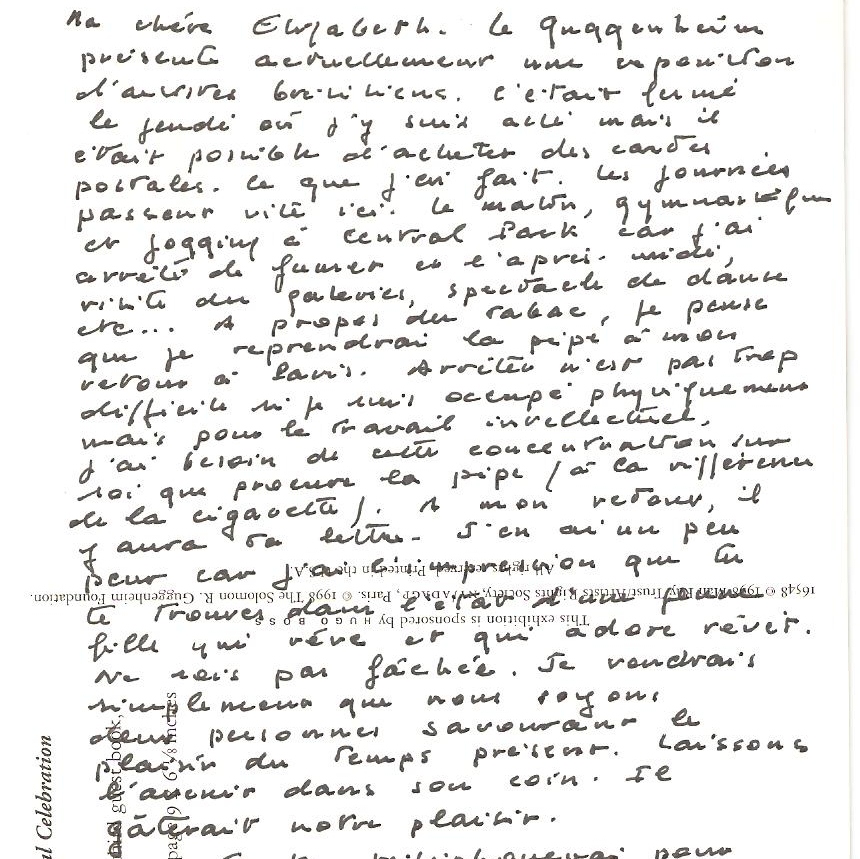 Ma chère Elizabeth. Le Guggenheim
présente actuellement une exposition
d'artistes brésiliens. C'était fermé
le jeudi où j'y suis allé mais il
était possible d'acheter des cartes
postales. Ce que j'ai fait. Les journées
passent vite ici. Le matin, gymnastique
et jogging à Central Park car j'ai
arrêté de fumer et l'après-midi,
visite des galeries, spectacle de danse
etc... A propos du tabac, je pense
que je reprendrai la pipe à mon
retour à Paris. Arrêter n'est pas trop
difficile si je suis occupé physiquement
mais pour le travail intellectuel,
j'ai besoin de cette concentration sur
soi que procure la pipe (à la différence
de la cigarette). A mon retour, il
y aura ta lettre. J'en ai un peu
peur car j'ai l'impression que tu
te trouves dans l'état d'une jeune
fille qui rêve et qui adore rêver.
Ne sois pas fâchée. Je voudrais
simplement que nous soyons
deux personnes savourant le
plaisir du temps présent. Laissons
l'avenir dans son coin. Il
gâterait notre plaisir.
pour
All rights reserved. Printed in the U.S.A.
16548 © 1998 Man Ray Trust/Artists Rights Society, NY/ADAGP, Paris. © 1998 The Solomon R. Guggenheim Foundation.
This exhibition is sponsored by HUGO BOSS
al Celebration
guest book,
page 9 × 6 ⅛ inches